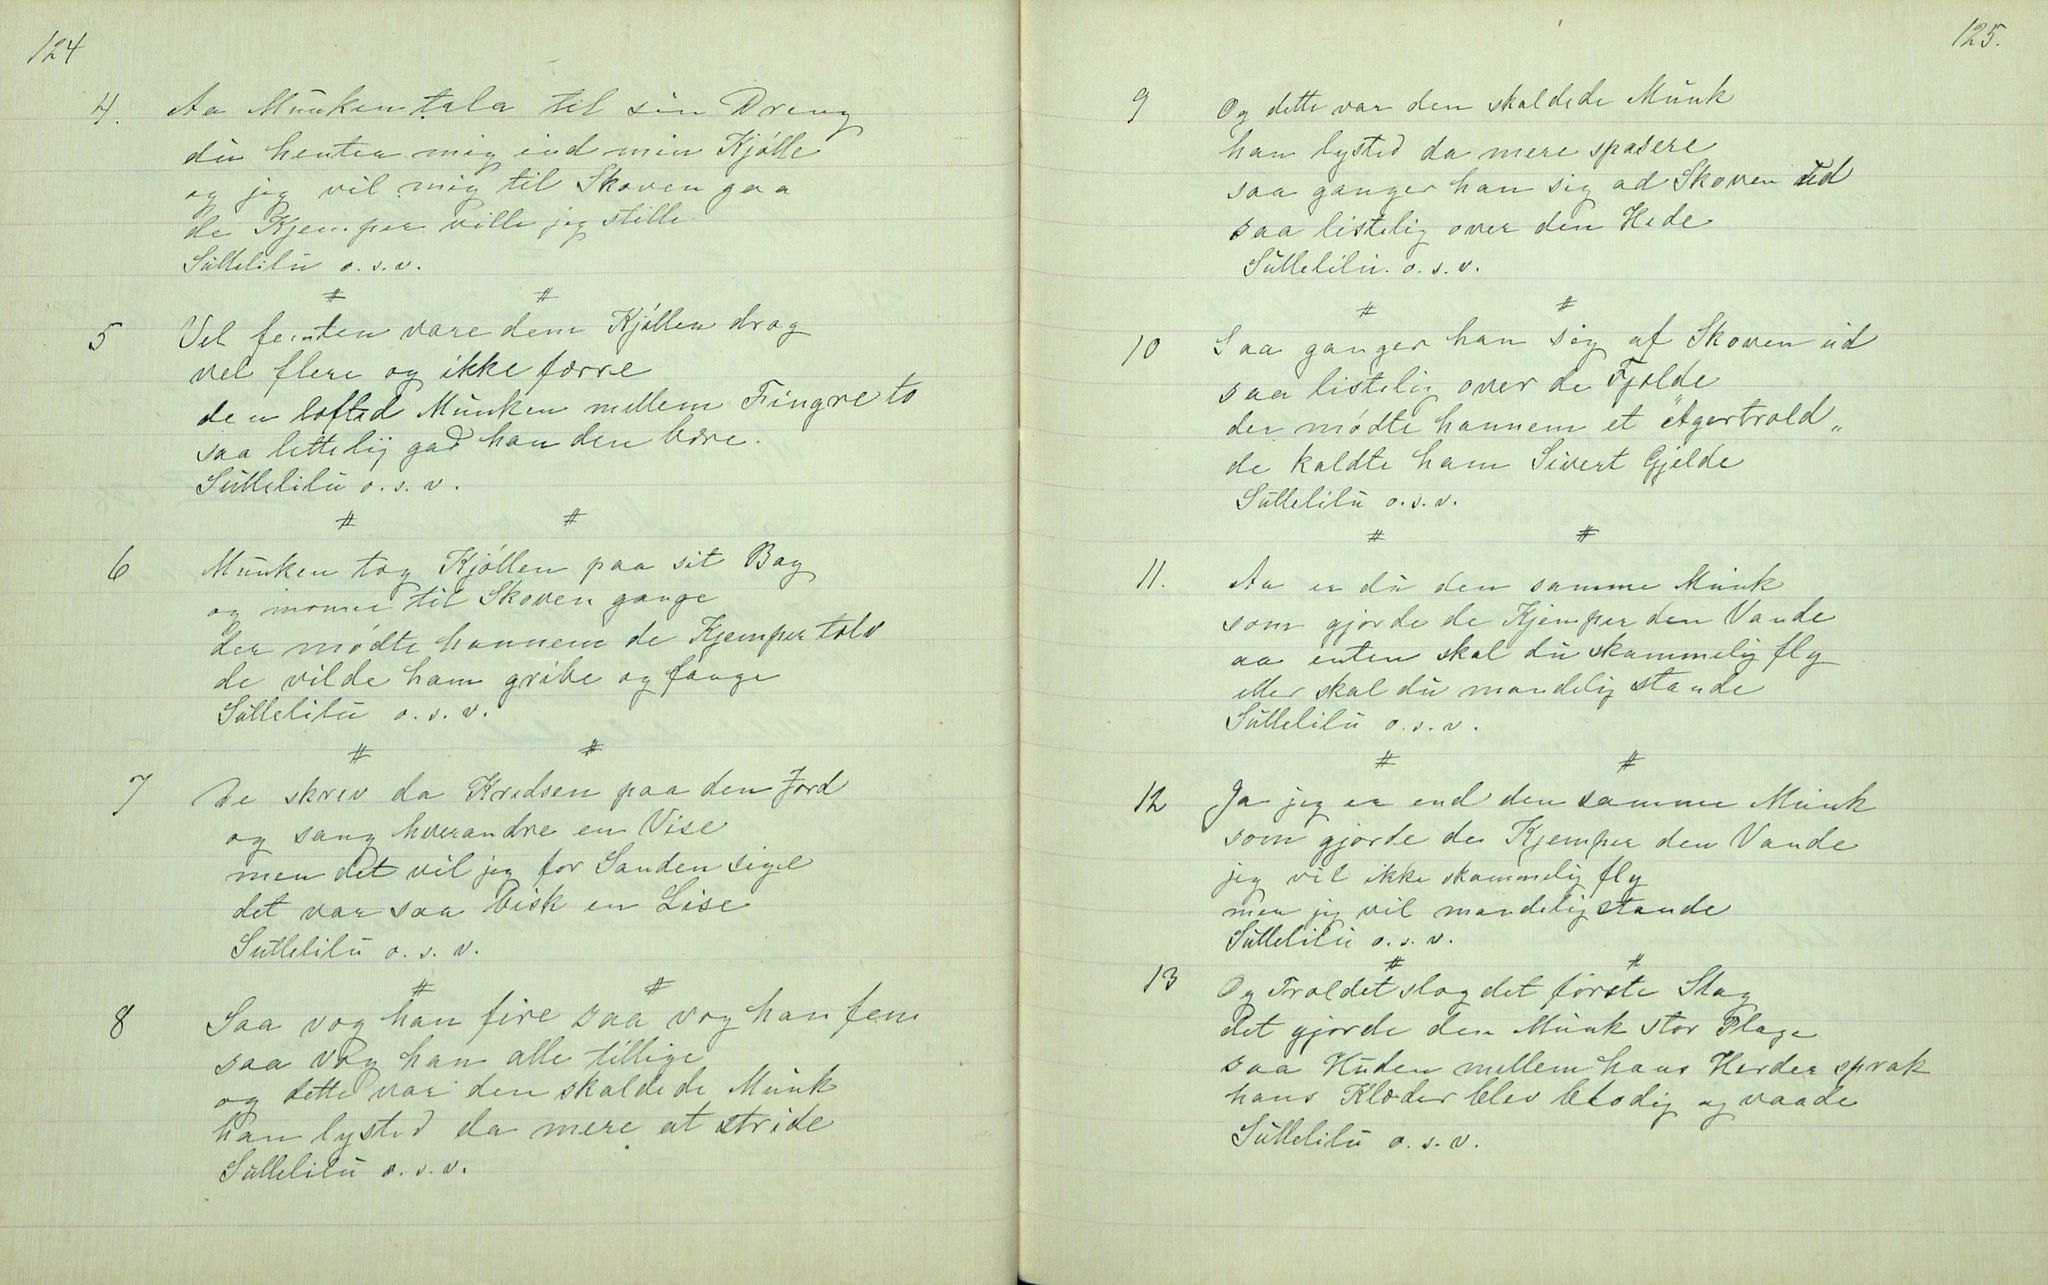 124
4. Aa Munken tala til sin Dreng
du henter mig ind min Kjølle
og jeg vil mig til Skoven gaa
de Kjemper ville jeg stille
Süttelilü o. s. v.
# #
5 Vel femten vare dem Kjøllen drog
vel flere og ikke færre
den lofted Munken mellem Fingre to
saa lettelig gad han den bære.
Süttelilü o. s. v.
# #
6 Munken tog Kjøllen paa sit Bag
og monne til Skoven gange
der mødte hannem de Kjemper tolv
de vilde ham gribe og fange
Süttelilü o. s. v.
# #
7 De skrev da Kredsen paa den Jord
og sang hverandre en Vise
men det vil jeg for Sanden sige
det var saa visk en Lise
Süttelilü o. s. v.
# #
8 Saa vog han fire saa vog han fem
saa vog han alle tillige
og dette var den skaldede Munk
han lysted da mere at stride
Süttelilü o. s. v.
125.
9 Og dette var den skaldede Munk
han lysted da mere spasere
saa ganger han sig ad Skoven ud
saa listelig over den Hede
Süttelilü. o. s. v.
# #
10 Saa ganger han sig af Skoven ud
saa listelig over de Fjelde
der mødte hannem et "Agertrold„
de kaldte ham Sivert Gjelde
Süttelilü o. s. v.
# #
11. Aa er du den samme Munk
som gjorde de Kjemper den Vande
aa enten skal du skammelig fly
eller skal du mandelig stande
Süttelilü o. s. v.
# #
12 Ja jeg er end den samme Munk
som gjorde de Kjemper den Vande
jeg vil ikke skammelig fly
men jeg vil mandelig stande
Süttelilü o. s. v.
# #
13 Og Troldet slog det første Slag
det gjorde den Munk stor Plage
saa Huden mellem hans Herder sprak
hans Klæder blev blodig og vaade
Süttelilü o. s. v.